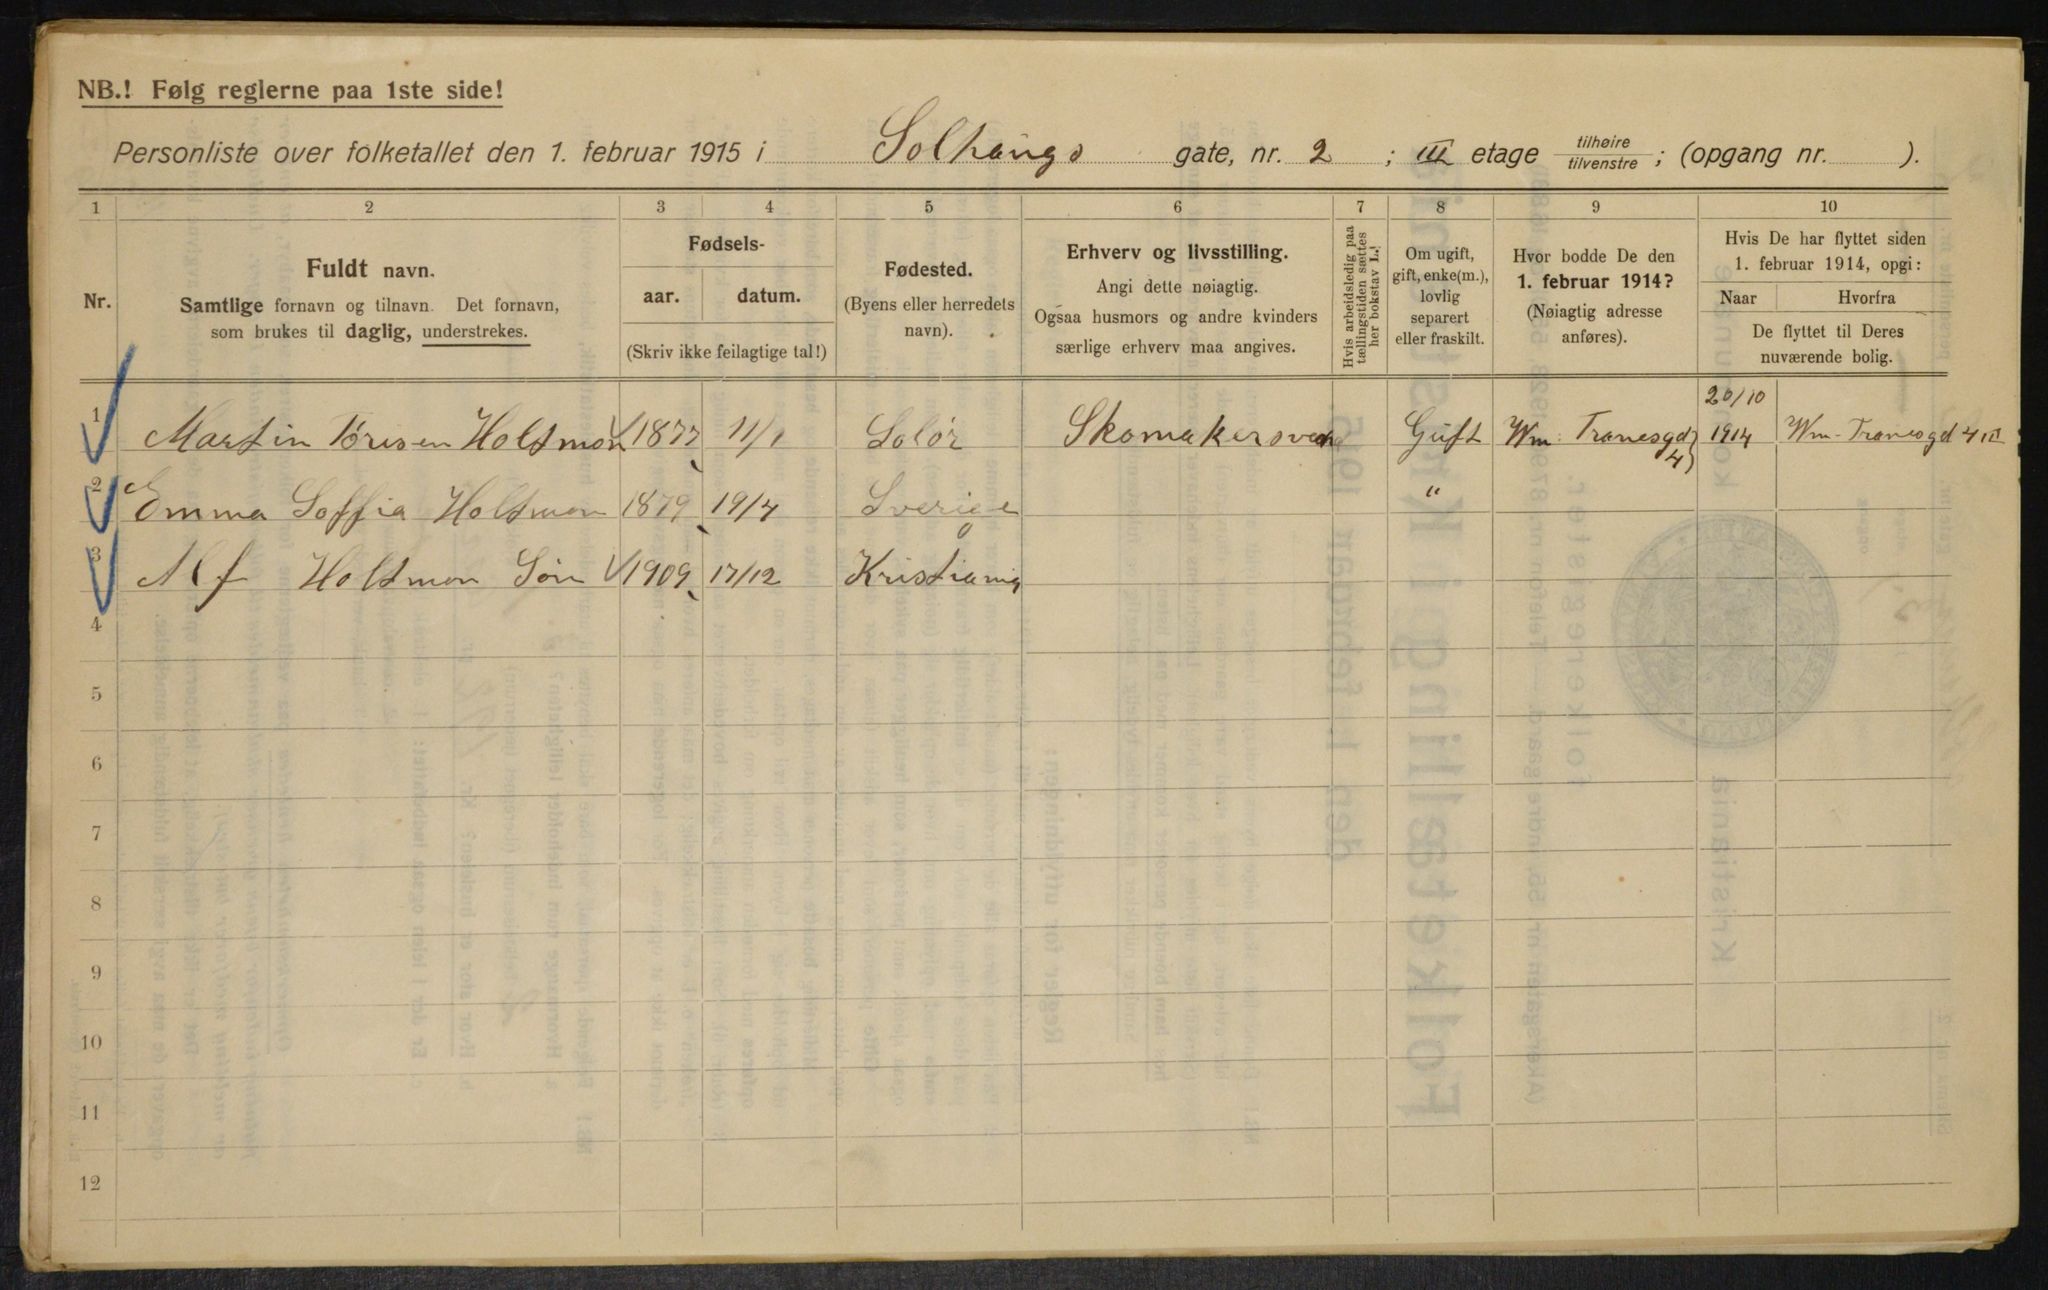 NB.! Følg reglerne paa 1ste side!
Personliste over folketallet den 1. februar 1915 i Solhaugs gate, nr. 2 ; III etage tilhøire / tilvenstre ; (opgang nr. ).
1 2 3 4 5 6 7 8 9 10
Nr.
Fuldt navn.
Samtlige fornavn og tilnavn. Det fornavn,
som brukes til daglig, understrekes.
Fødsels-
aar. datum.
(Skriv ikke feilagtige tal!)
Fødested.
(Byens eller herredets
navn).
Erhverv og livsstilling.
Angi dette nøiagtig.
Ogsaa husmors og andre kvinders
særlige erhverv maa angives.
Hvis arbeidsledig paa
tællingstiden sættes
her bokstav L.!
Om ugift,
gift, enke(m.),
lovlig
separert
eller fraskilt.
Hvor bodde De den
1. februar 1914?
(Nøiagtig adresse
anføres).
Hvis De har flyttet siden
1. februar 1914, opgi:
Naar Hvorfra
De flyttet til Deres
nuværende bolig.
1 Martin Torisen Holtmon 1877 11/1 Solør Skomakersvend Gift Wm. Tranesgd 4 20/10 1914 Wm. Tranesgd 4 III
2 Emma Soffia Holtmon 1879 19/4 Sverige "
3 Alf Holtmon Søn 1909 17/12 Kristiania
4
5
6
7
8
9
10
11
12